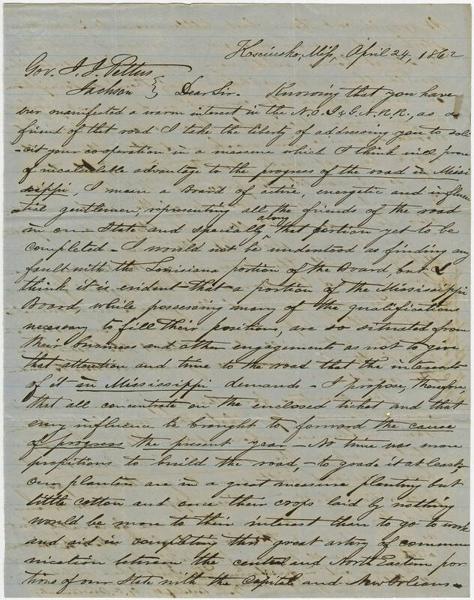 Kosciusko, Miss, April 24, 1862
Gov. J. J. Pettus
Jackson } Dear Sir. Knowing that you have
ever manifested a warm interest in the N.O.J. & G.N.R.R., as a
friend of that road I take the liberty of addressing you to soli-
cit your cooperation in a measure which I think will prove
of incalculable advantage to the progress of the road in Missi
ssippi. I mean a Board of active, energetic and influen
tial gentlemen, representing all the friends of the road
in our State and specially along that portion yet to be
completed - I would not be understood as finding any
fault with the Louisiana portion of the Board, but I
think it is evident that a portion of the Mississippi
Board, while possessing many of the qualifications
necessary to fill their position, are so situated from
their business and other engagements as not to give
that attention and time to the road that the interests
of it in Mississippi demands - I propose, therefore
that all concentrate on the enclosed ticket and that
every influence be brought to forward the cause
of progress the present year - No time was more
propitious to build the road, - to grade it at least
Our planters are in a great measure planting but
little cotton and once their crops laid by nothing
would be more to their interest than to go to work
and aid in completing this great artery of commu
nication between the central and North Eastern por
tions of our State with the Capital and New Orleans -